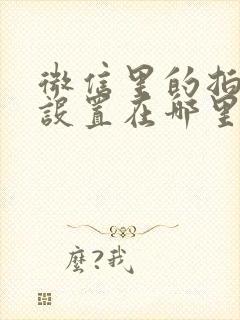 微信里的指
設置在哪里
麼?我